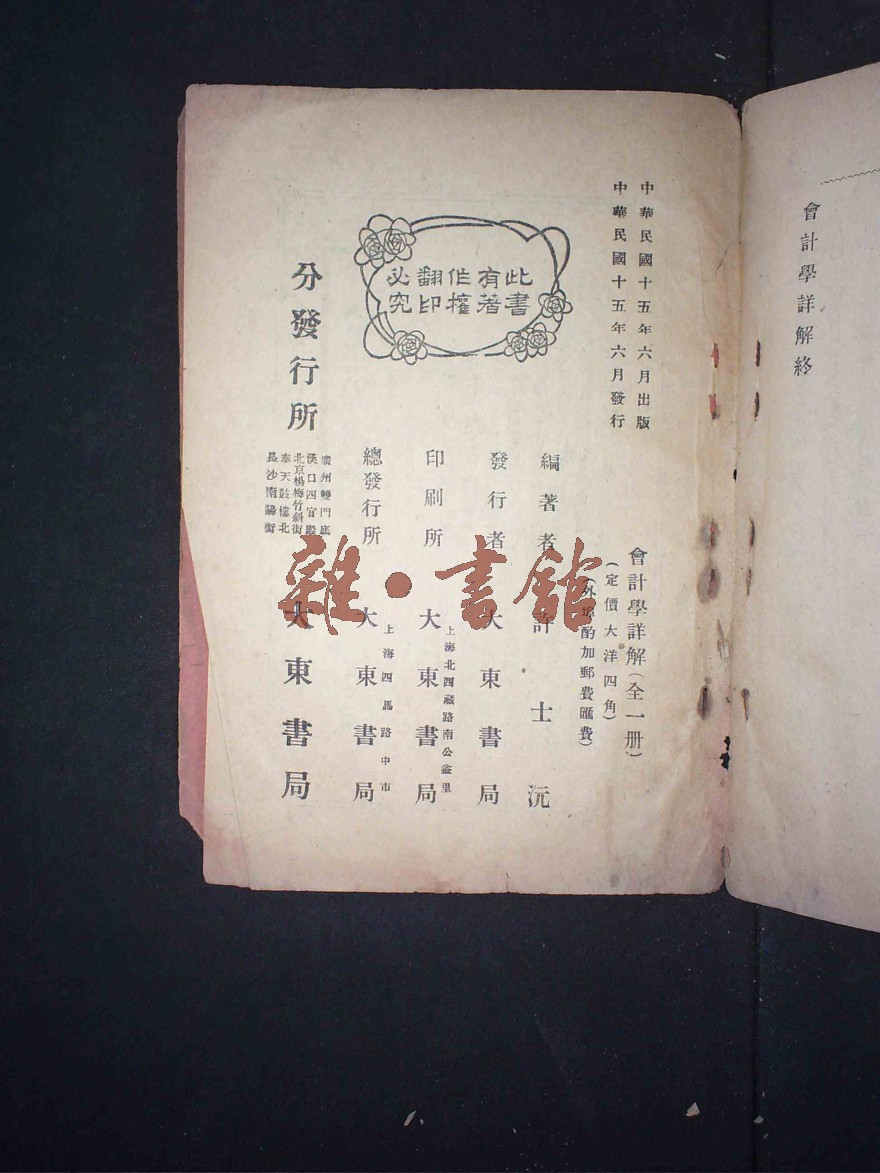 會計學詳解終
中華民國十五年六月出版
中華民國十五年六月發行
此書有著作權翻印必究
會計學詳解(全一册)
(定價大洋四角)
(外埠酌加郵費匯費)
編著者 許士沅
發行者 大東書局
印刷所 上海北西藏路南公益里 大東書局
總發行所 上海四馬路中市 大東書局
分發行所
廣州雙門底
漢口四官殿
北京楊梅竹斜街
奉天鼓樓北
長沙南陽街
大東書局
雜·書館